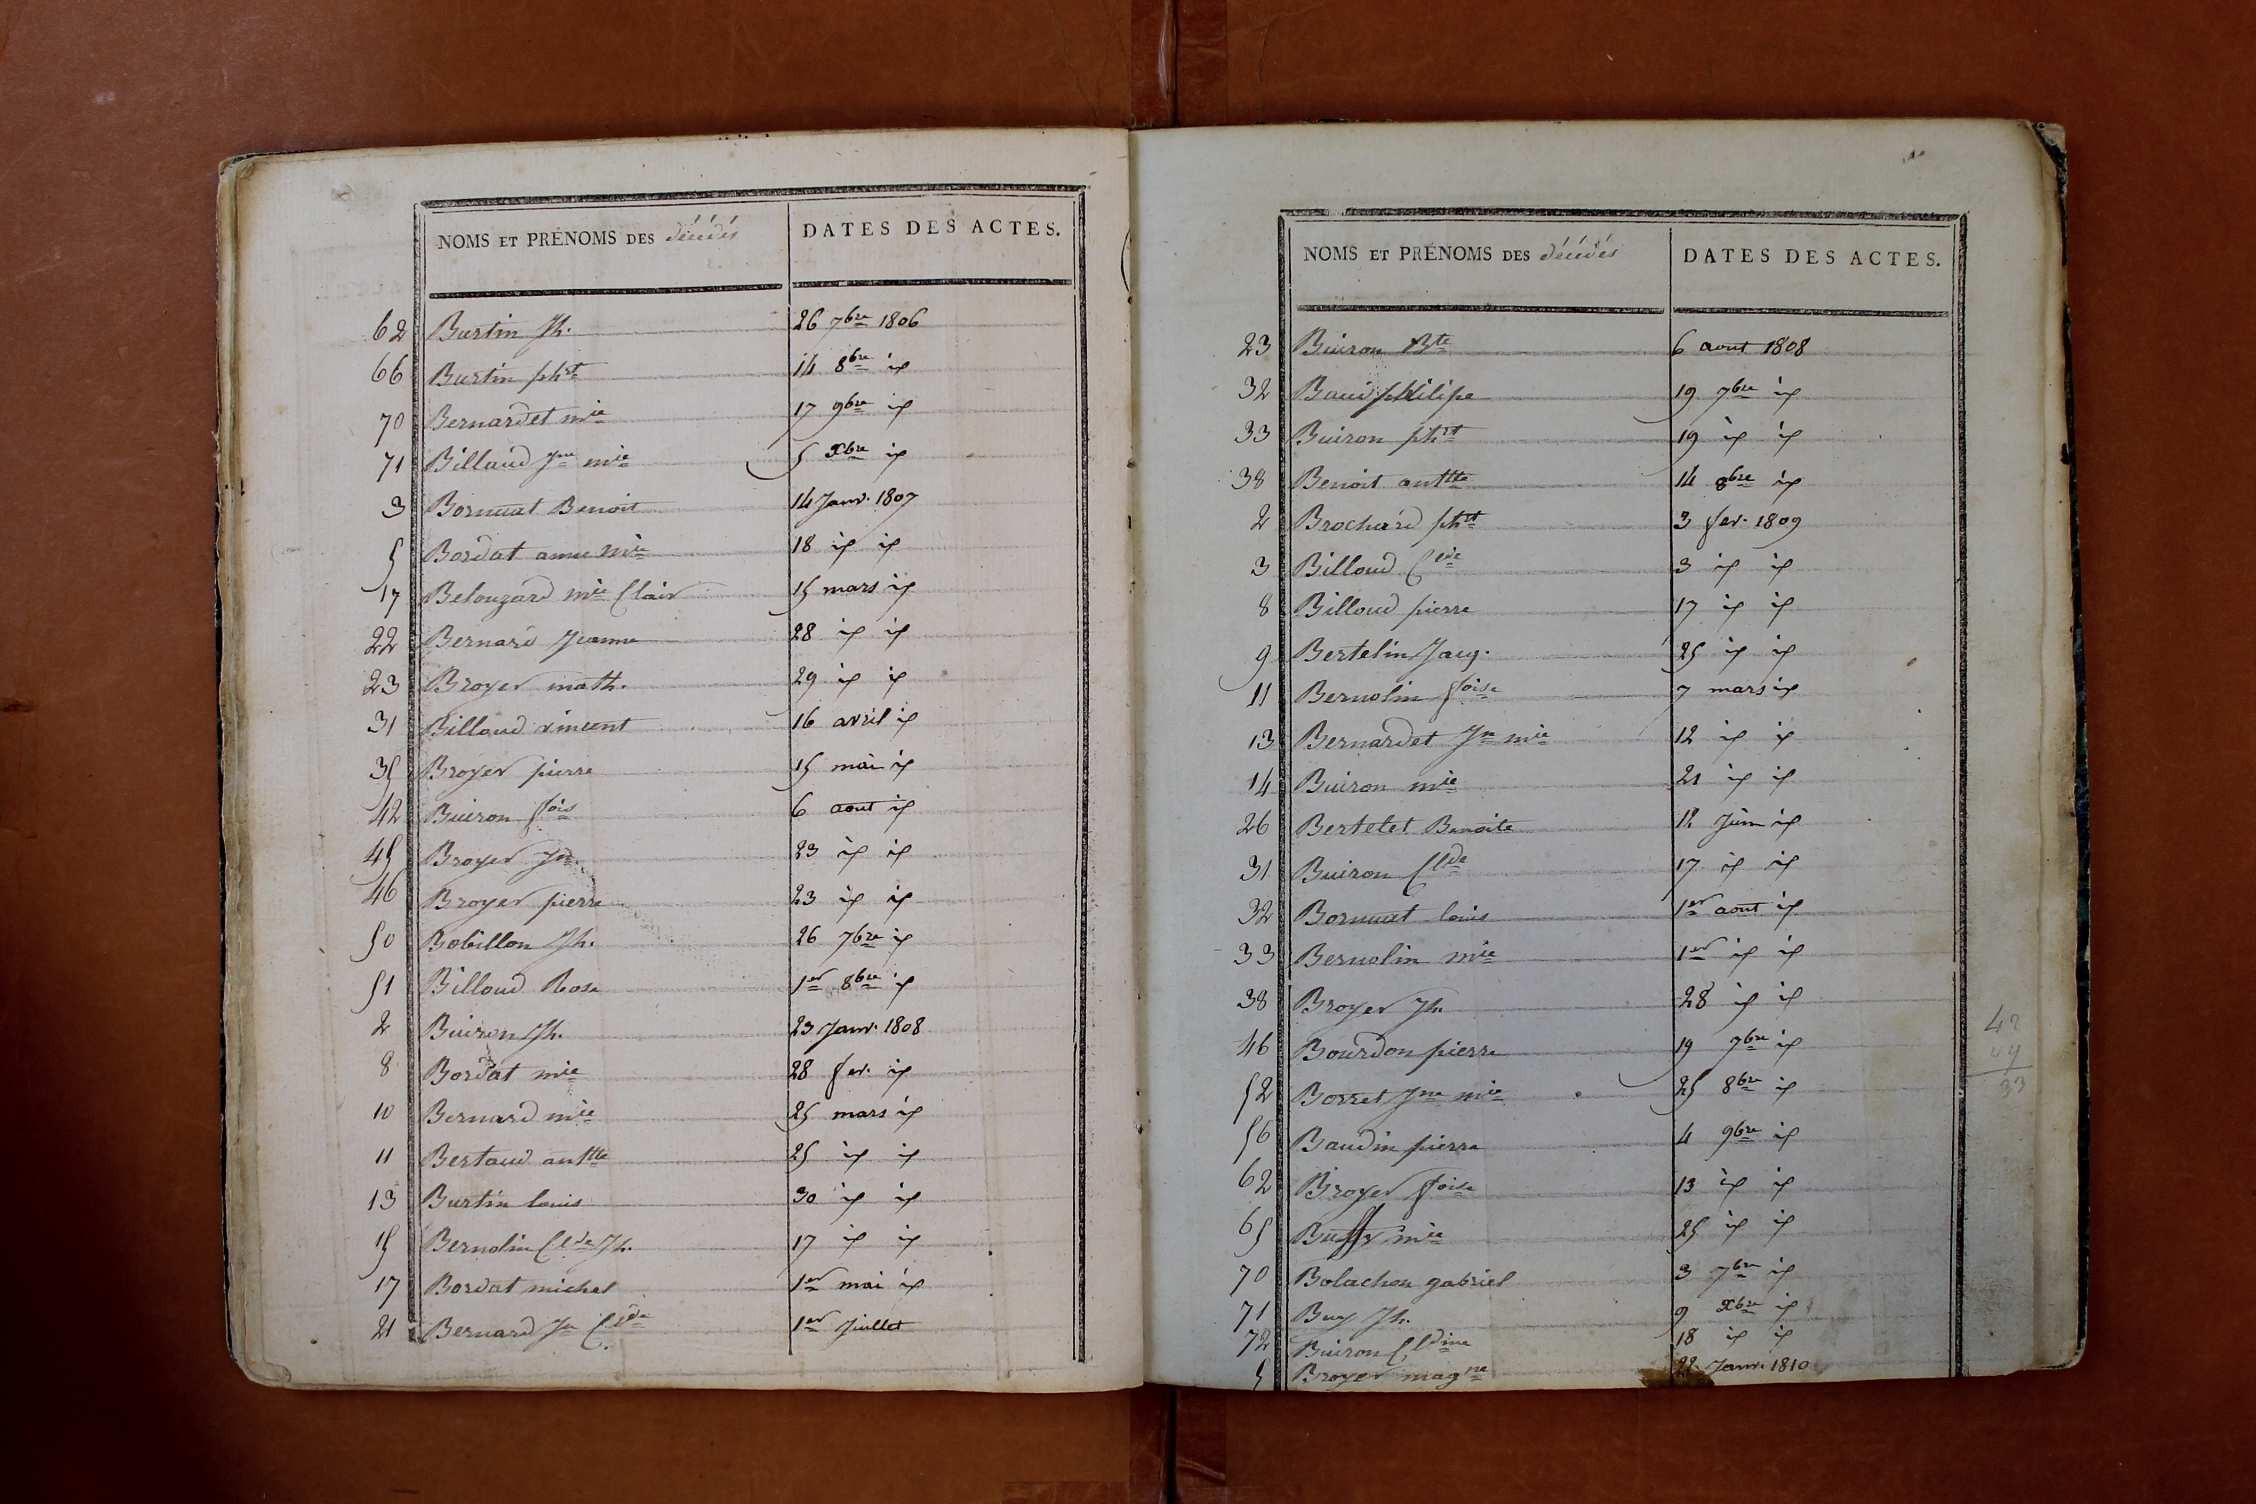 NOMS ET PRÉNOMS DES décédés DATES DES ACTES.
62 Burtin Jh. 26 7bre 1806
66 Burtin phrt 14 8bre id
70 Bernardet mie 17 9bre id
71 Billaud Jne mie 5 Xbre id
3 Bornuat Benoit 14 Janv. 1807
5 Bordat anne mie 18 id id
17 Belouzard mie Clair 15 mars id
22 Bernard Jeanne 28 id id
23 Broyer math. 29 id id
31 Billoud vincent 16 avril id
35 Broyer pierre 15 mai id
42 Buiron fois 6 aout id
45 Broyer Jn. 23 id id
46 Broyer pierre 23 id id
50 Bobillon Jh. 26 7bre id
51 Billoud Rose 1er 8bre id
2 Buiron Jh. 23 Janv. 1808
8 Bordat mie 28 fev. id
10 Bernard mie 25 mars id
11 Bertaud anttte 25 id id
13 Burtin louis 30 id id
15 Bernolin Clde Jh. 17 id id
17 Bordat michel 1er mai id
21 Bernard Jn Clde 1er Juillet
NOMS ET PRÉNOMS DES décédés DATES DES ACTES.
23 Buiron Bte 6 aout 1808
32 Baud philipe 19 7bre id
33 Buiron phrt 19 id id
38 Benoit anttte 14 8bre id
2 Brochard phrt 3 fev. 1809
3 Billoud Cde 3 id id
8 Billoud pierre 17 id id
9 Bertelin Jacq. 25 id id
11 Bernolin foise 7 mars id
13 Bernardet Jn mie 12 id id
14 Buiron mie 21 id id
26 Bertelet Benoite 12 Juin id
31 Buiron Clde 17 id id
32 Bornuat louis 1er aout id
33 Bernolin mie 1er id id
38 Broyer Jh. 28 id id
46 Bourdon pierre 19 7bre id
52 Borret Jne mie 25 8bre id
56 Baudin pierre 4 9bre id
62 Broyer foise 13 id id
65 Buffy mie 25 id id
70 Bolachon gabriel 3 7bre id
71 Buy Jh. 9 Xbre id
72 Buiron Cldine 18 id id
5 Broyer magne 22 Janv. 1810
33